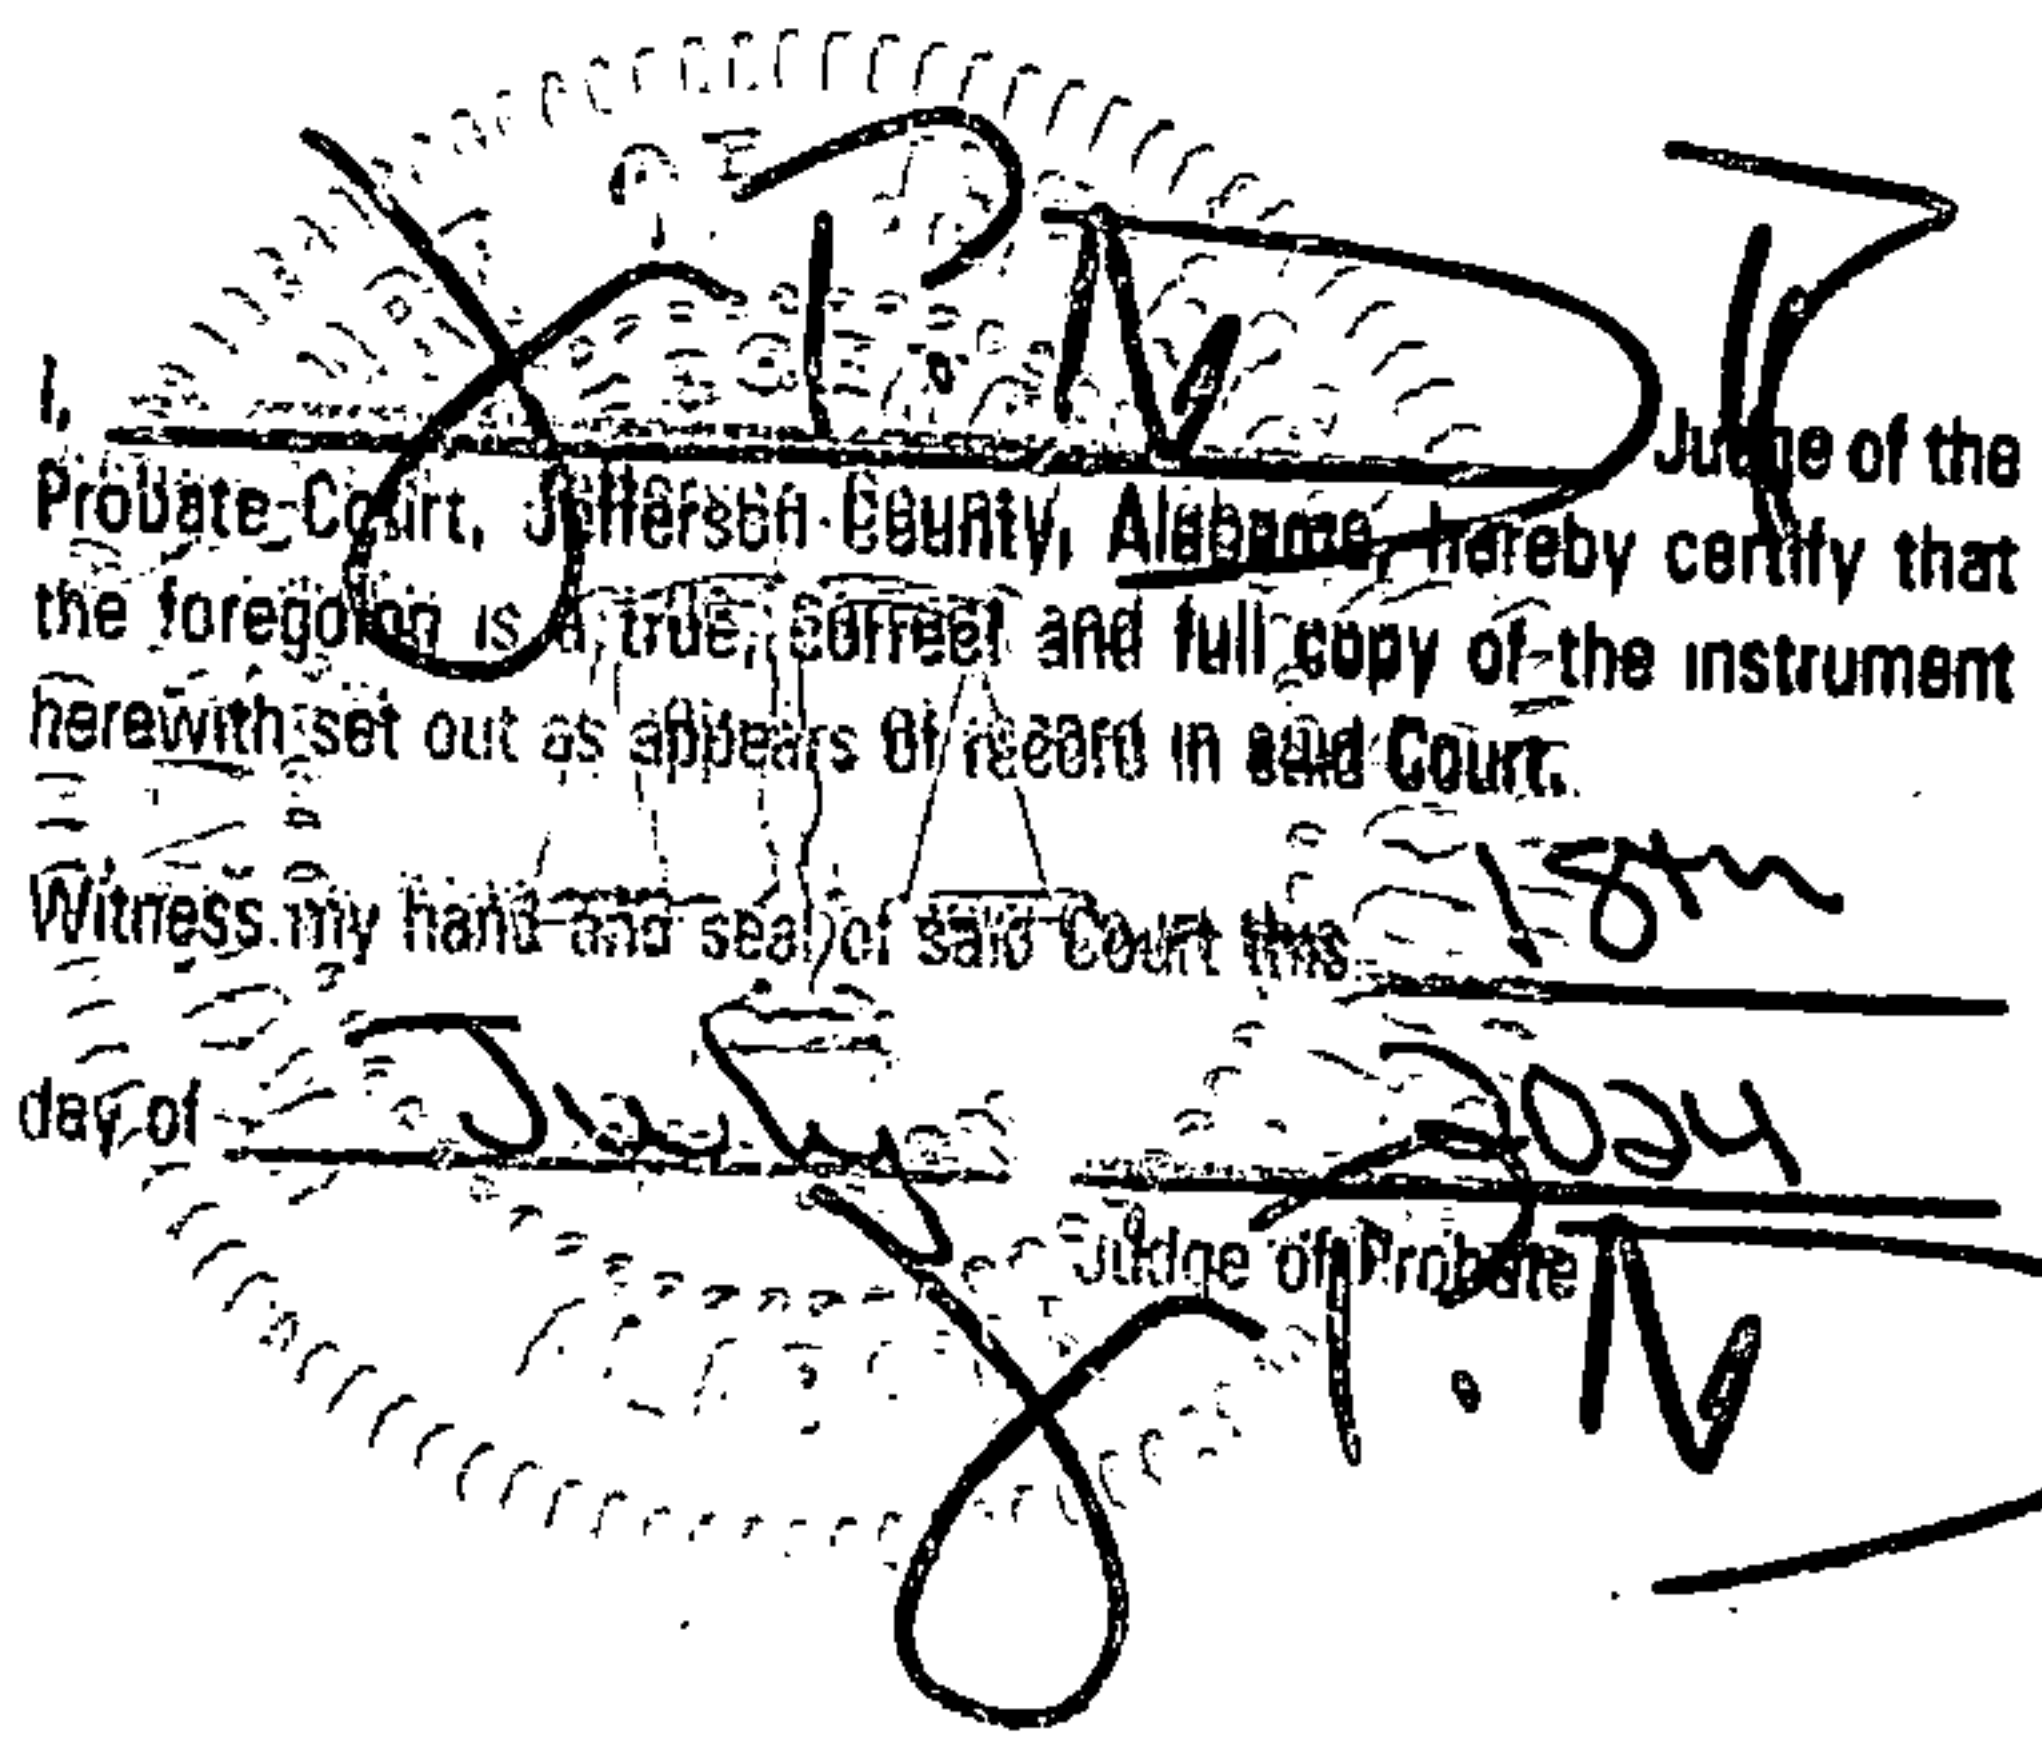 I, Judge of the
Probate Court, Jefferson County, Alabama, hereby certify that
the foregoing is a true, correct and full copy of the instrument
herewith set out as appears of record in said Court.
Witness my hand and seal of said Court this 18th
day of July 2024
Judge of Probate